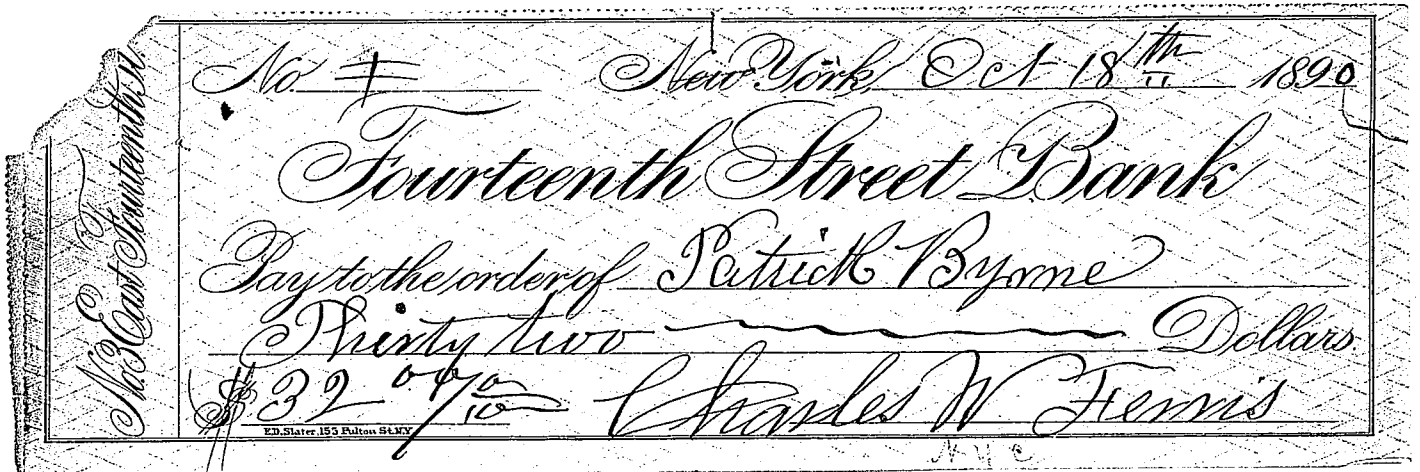 No. 3 East Fourteenth St.
No.
New York, Oct 18th 1890
Fourteenth Street Bank
Pay to the order of Patrick Byrne
Thirty two Dollars
$32 00/100 Charles W
E.D. Slater, 153 Fulton St. N.Y.
N Y C